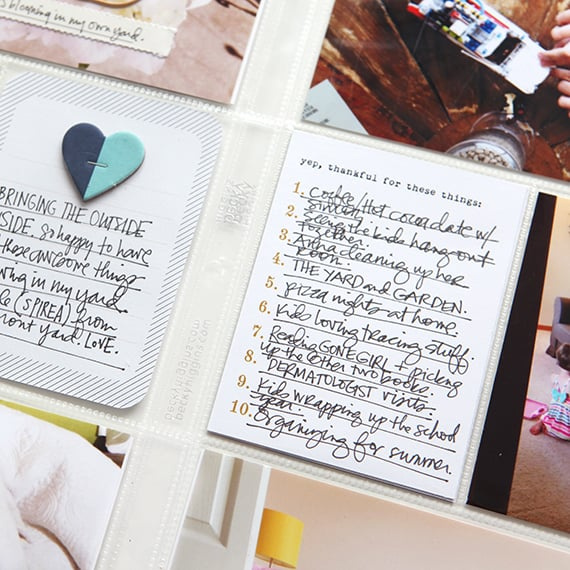 is blooming in my own yard.
BRINGING THE OUTSIDE
so happy to have
these awesome things
in my yard.
(SPIREA) from
front yard. LOVE.
becky higgins.com
beckyhiggins.com
yep, thankful for these things:
1. Coffee/Hot cocoa date w/
2. seeing the kids hang out
together.
3. Anna cleaning up her
room.
4. THE YARD and GARDEN.
5. pizza nights at home.
6. Kids loving tracing stuff.
7. Reading GONE GIRL + picking
up the other two books.
8. DERMATOLOGIST visits.
9. Kids wrapping up the school
year.
10. Organizing for summer.